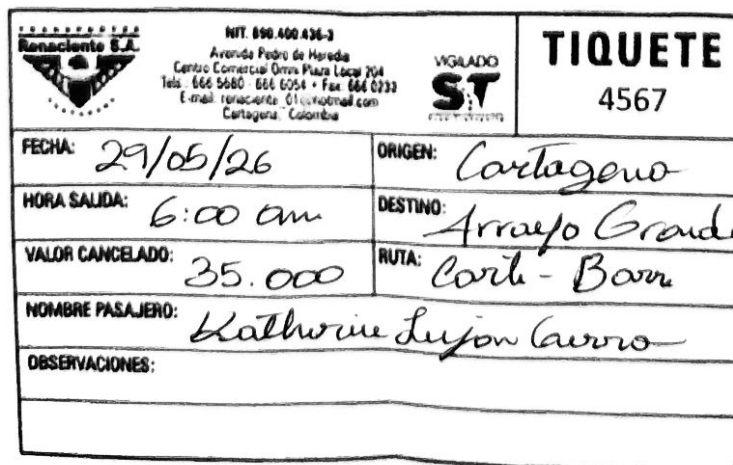 TRANSPORTES
Renaciente S.A.
NIT. 890.400.436-3
Avenida Pedro de Heredia
Centro Comercial Omni Plaza Local 204
Tels.: 666 5680 - 666 6054 • Fax: 666 0233
E-mail: renaciente_01@hotmail.com
Cartagena, Colombia
VIGILADO
ST
TIQUETE
4567
FECHA: 29/05/26
ORIGEN: Cartagena
HORA SALIDA: 6:00 am
DESTINO: Arroyo Grande
VALOR CANCELADO: 35.000
RUTA: Cart - Barr
NOMBRE PASAJERO: Katherine Lujan
OBSERVACIONES: